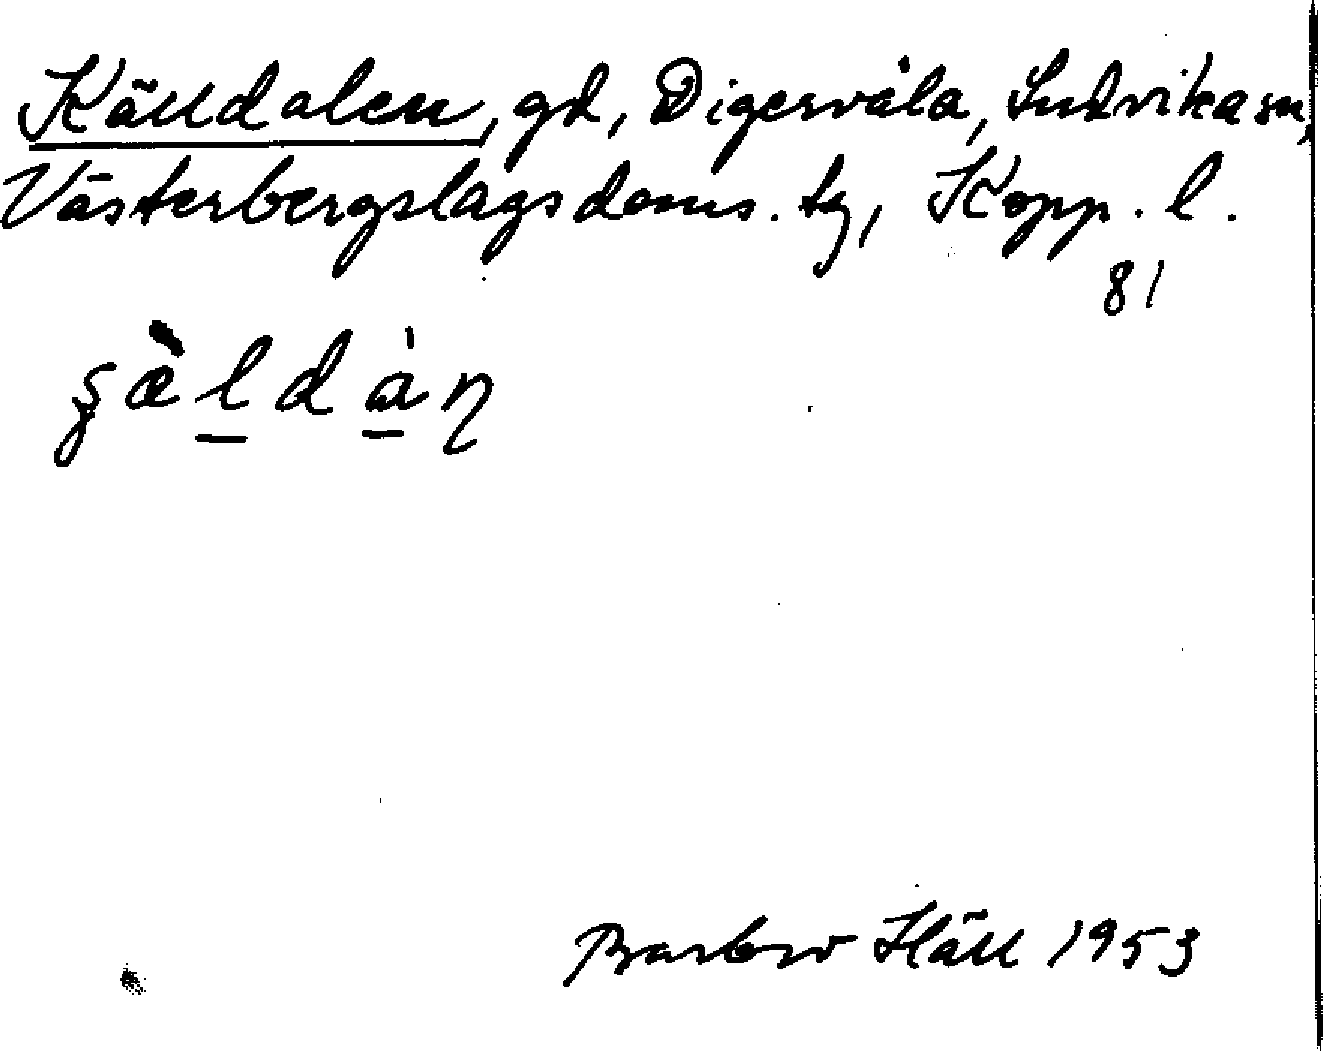 Källdalen, gd, Digervåla, Ludvika sn,
Västerbergslags doms. tg, Kopp. l.
81
Barbro Häll 1953